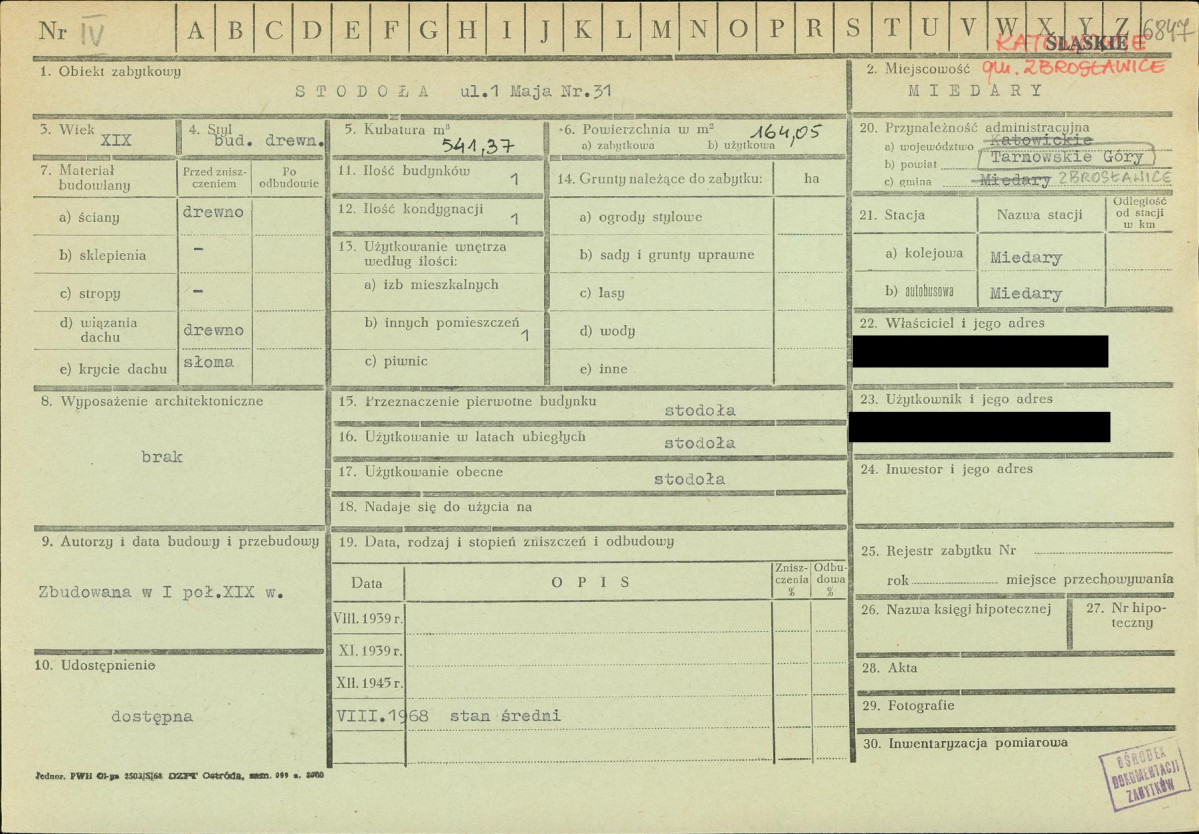 Nr IV A B C D E F G H I J K L M N O P R S T U V W X Y Z 6847
ŚLĄSKIE
gm. ZBROSŁAWICE
1. Obiekt zabytkowy
STODOŁA ul.1 Maja Nr.31
2. Miejscowość
MIEDARY
3. Wiek
XIX
4. Styl
bud. drewn.
5. Kubatura m³
541,37
6. Powierzchnia w m²
164,05
a) zabytkowa b) użytkowa
7. Materiał budowlany
Przed zniszczeniem
Po odbudowie
a) ściany drewno
b) sklepienia –
c) stropy –
d) wiązania dachu drewno
e) krycie dachu słoma
11. Ilość budynków 1
12. Ilość kondygnacji 1
13. Użytkowanie wnętrza
według ilości:
a) izb mieszkalnych
b) innych pomieszczeń 1
c) piwnic
14. Grunty należące do zabytku: ha
a) ogrody stylowe
b) sady i grunty uprawne
c) lasy
d) wody
e) inne
20. Przynależność administracyjna
a) województwo Katowickie
b) powiat Tarnowskie Góry
c) gmina Miedary ZBROSŁAWICE
21. Stacja Nazwa stacji
Odległość
od stacji
w km
a) kolejowa Miedary
b) autobusowa Miedary
22. Właściciel i jego adres
23. Użytkownik i jego adres
24. Inwestor i jego adres
8. Wyposażenie architektoniczne
brak
15. Przeznaczenie pierwotne budynku
stodoła
16. Użytkowanie w latach ubiegłych
stodoła
17. Użytkowanie obecne
stodoła
18. Nadaje się do użycia na
9. Autorzy i data budowy i przebudowy
Zbudowana w I poł.XIX w.
10. Udostępnienie
dostępna
19. Data, rodzaj i stopień zniszczeń i odbudowy
Data OPIS
Zniszczenia %
Odbudowa %
VIII. 1939 r.
XI. 1939 r.
XII. 1945 r.
VIII.1968 stan średni
25. Rejestr zabytku Nr
rok miejsce przechowywania
26. Nazwa księgi hipotecznej
27. Nr hipoteczny
28. Akta
29. Fotografie
30. Inwentaryzacja pomiarowa
OŚRODEK
DOKUMENTACJI
ZABYTKÓW